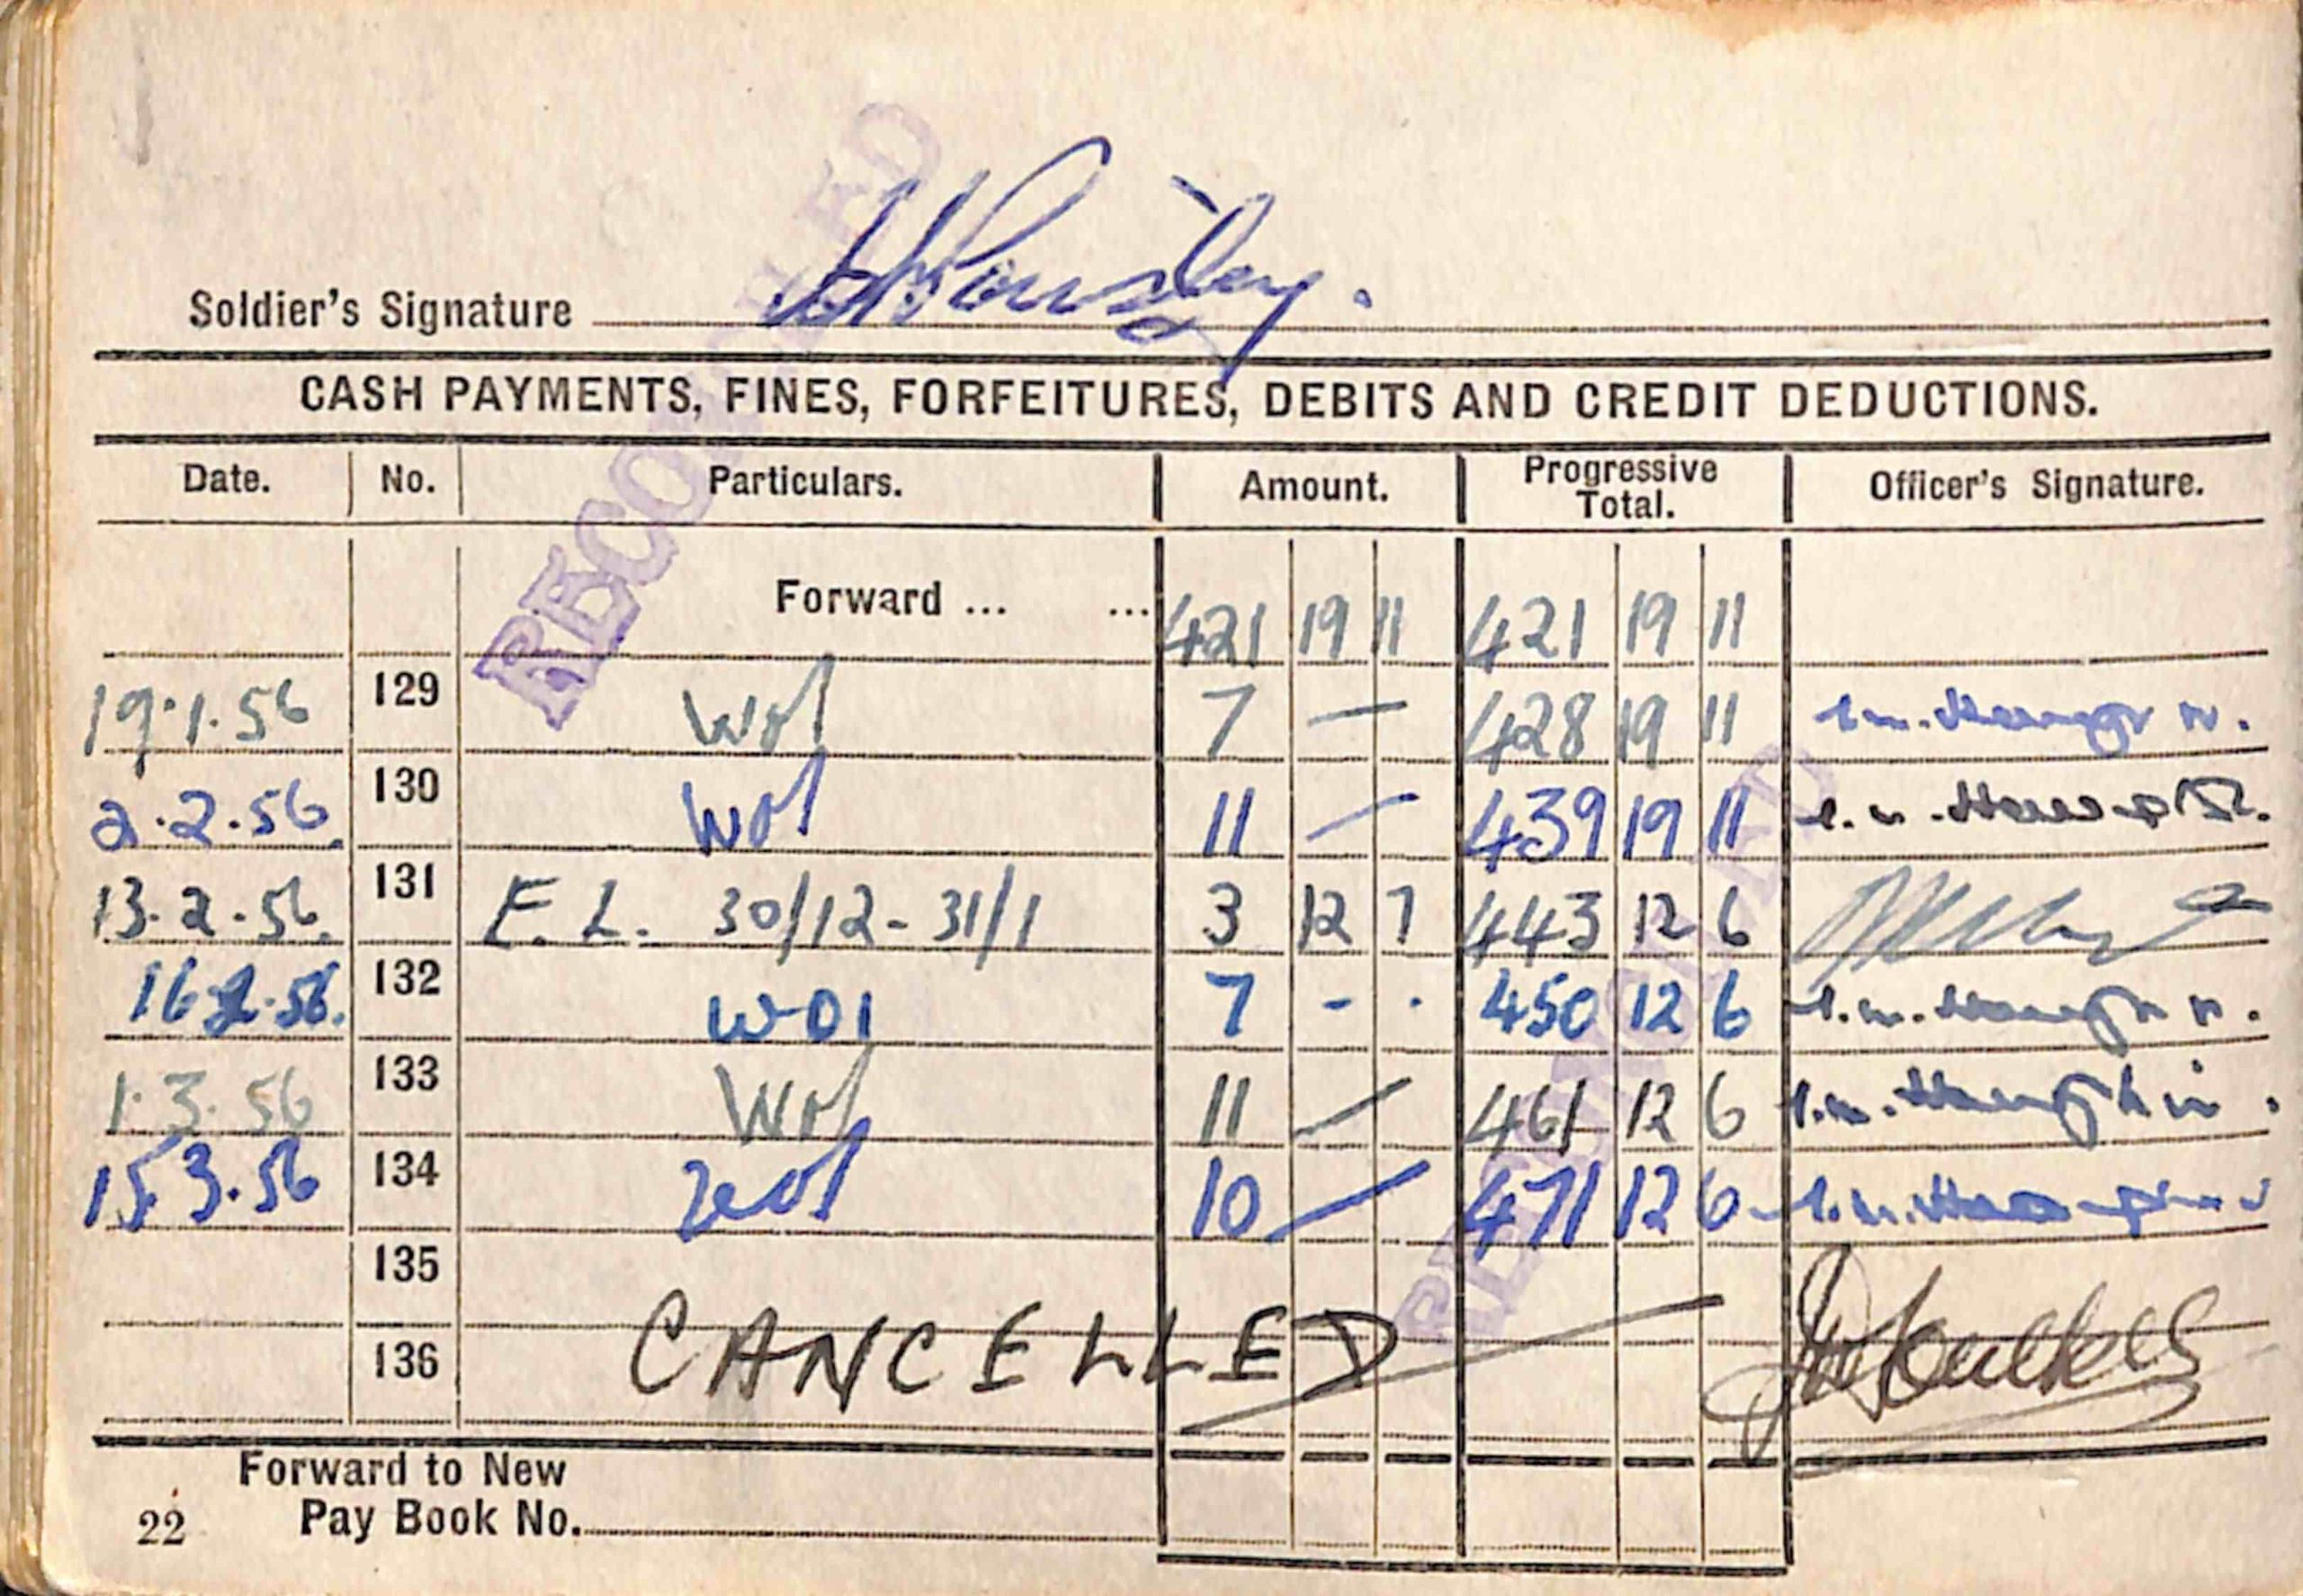 Soldier's Signature
CASH PAYMENTS, FINES, FORFEITURES, DEBITS AND CREDIT DEDUCTIONS.
Date. No. Particulars. Amount. Progressive Total. Officer's Signature.
Forward ... ... 421 19 11 421 19 11
19.1.56 129 W01 7 — 428 19 11
2.2.56. 130 W01 11 — 439 19 11
13.2.56. 131 E.L. 30/12-31/1 3 12 7 443 12 6
16.2.56. 132 W01 7 - . 450 12 6
1.3.56 133 W01 11 — 461 12 6
15.3.56 134 W01 10 — 471 12 6
135
CANCELLED
136
Forward to New
22 Pay Book No.